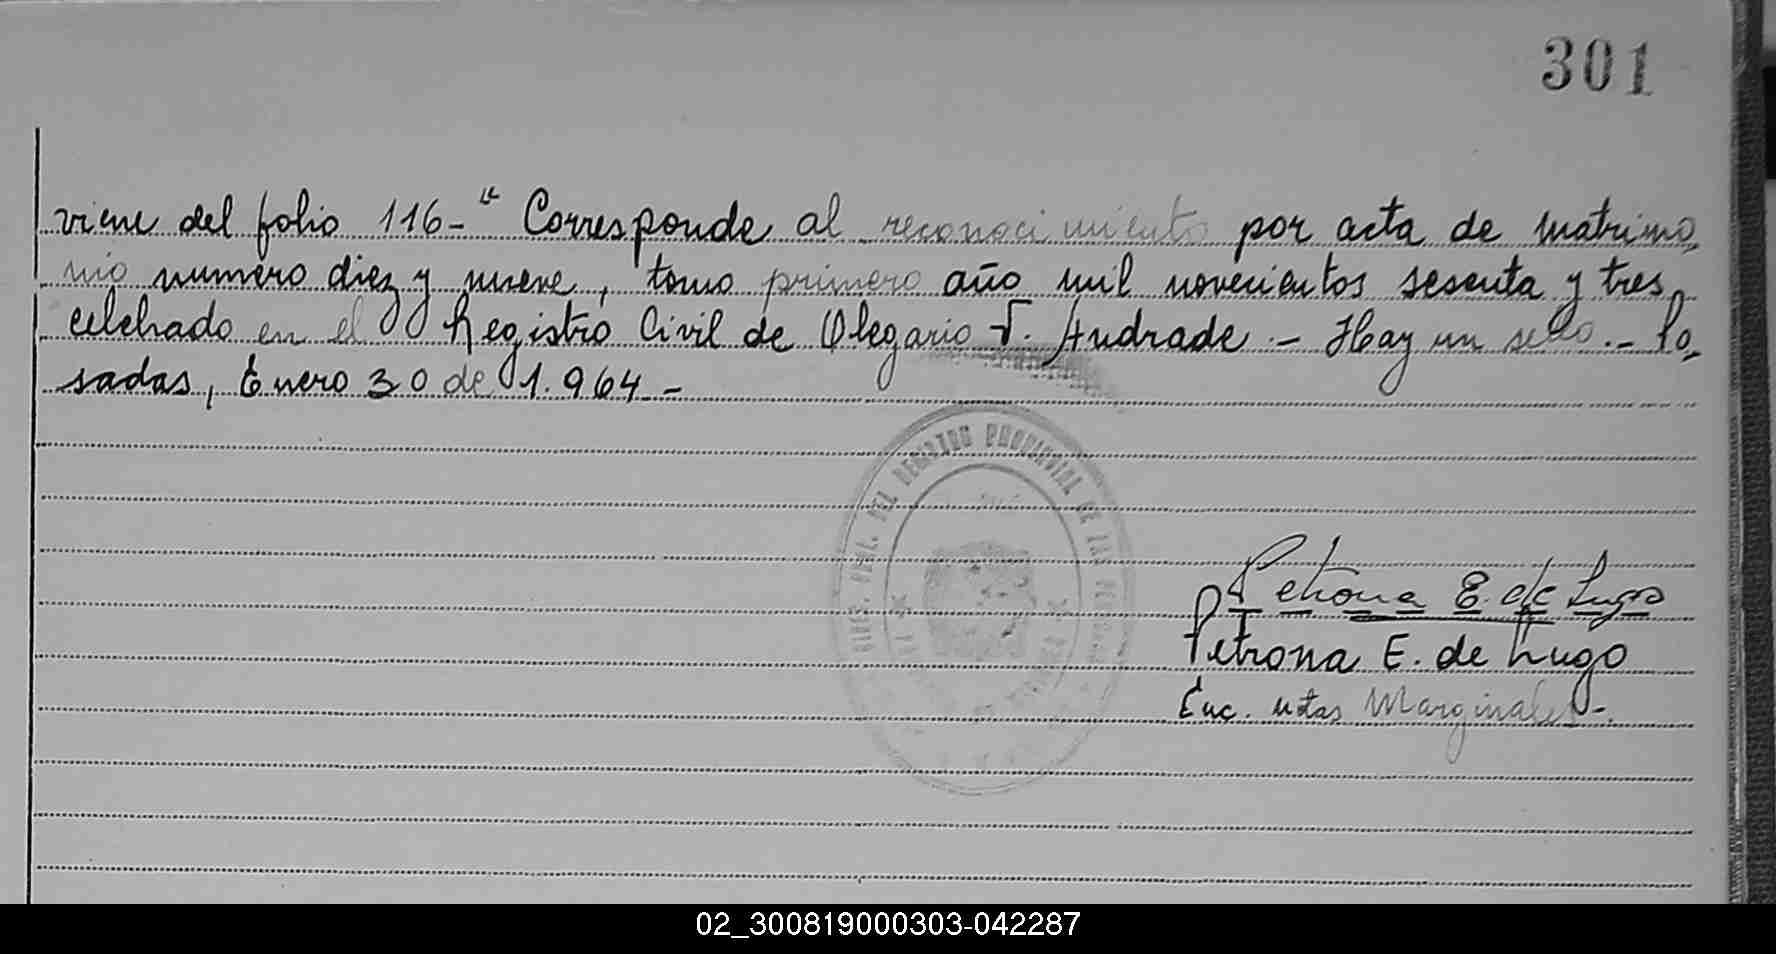 301
viene del folio 116-" Corresponde al reconocimiento por acta de matrimo,
nio numero diez y nueve, tomo primero año mil novecientos sesenta y tres
celebrado en el Registro Civil de Olegario V. Andrade.- Hay un sello.- Po,
sadas, Enero 30 de 1.964-
DEL REGISTRO PROVINCIAL DE LAS PERSONAS
Petrona E. de Lugo
Petrona E. de Lugo
Enc. notas Marginales-.
02_300819000303-042287